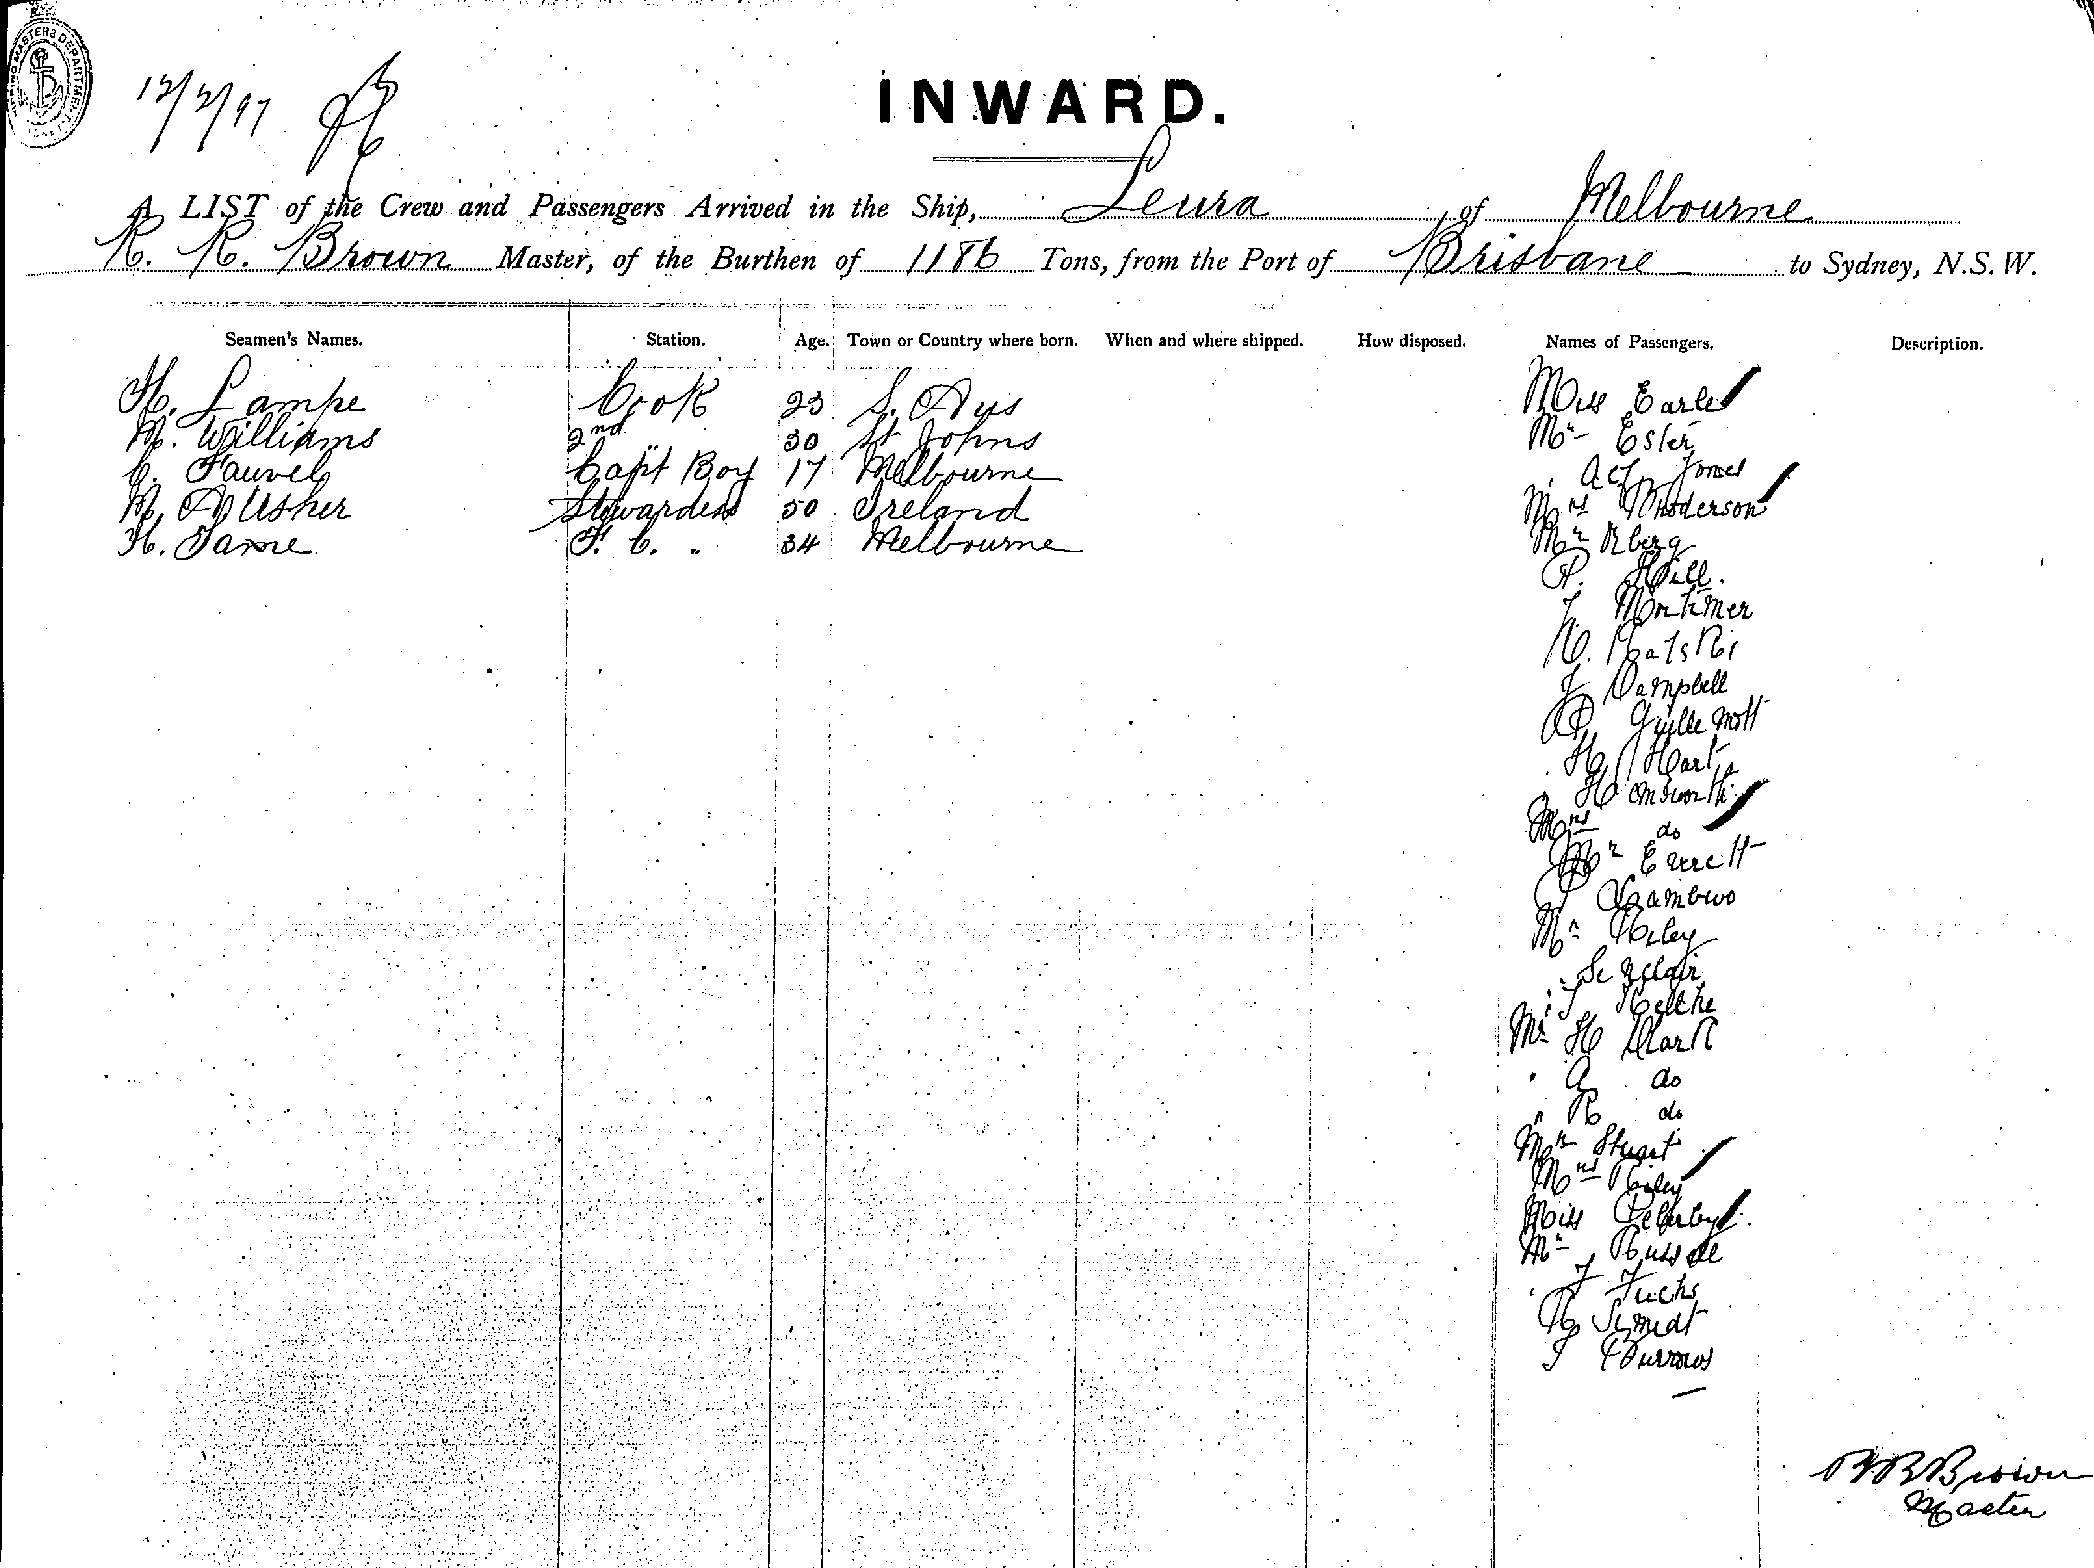 12/2/97
INWARD.
A LIST of the Crew and Passengers Arrived in the Ship, Leura of Melbourne
R. R. Brown Master, of the Burthen of 1186 Tons, from the Port of Brisbane to Sydney, N.S.W.
Seamen's Names. Station. Age. Town or Country where born. When and where shipped. How disposed. Names of Passengers. Description.
H. Lampe Cook 23 S. Aus
M. Williams 2nd " 30 St Johns
C. Fauvel Capt Boy 17 Melbourne
M. A Usher Stewardess 50 Ireland
H. Tame F. C. " 34 Melbourne
Miss Earle
Mr Ester
Jones
Mrs
Mr
Hill.
J Mortimer
H.
J Campbell
H Hart
Mrs do
Mr
Mr
Sinclair
Mr H Clark
" A do
" R do
Mr Stuart
Mrs Riley
Miss
Mr Russell
J Fuchs
Scmidt
Burrows
R R Brown
Master